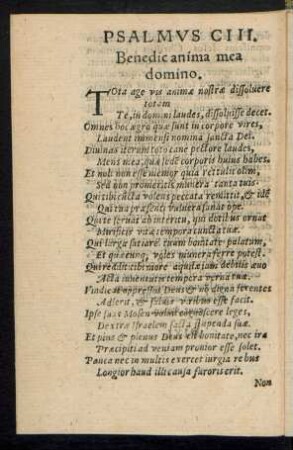 PSALMVS CIII.
Benedic anima mea
domino.
TOta age vis animæ nostræ dissoluere
totam
Te, in domini laudes, dissoluisse decet.
Omnes hoc ægro quæ sunt in corpore vires,
Laudent immensi nomina sancta Dei.
Diuinas iterum toto cane pectore laudes,
Mens mea, quæ sedē corporis huius habes.
Et noli non esse memor quia rettulit olim,
Sed non promeritis munera tanta tuis.
Qui tibi cūcta volens peccata remittit, & idē
Qui tua præsenti vulnera sanat ope.
Qui te seruat ab interitu, qui dotibus ornat
Mirificis vitæ tempora cuncta tuæ.
Qui larga satiare tuum bonitate palatum,
Et quæcunq; voles munera ferre potest.
Qui reddit tibi more aquilæ iam debilis æuo
Acta iuuentutis tempora verna tuæ.
Vindicat oppressos Deus & nō digna ferentes
Adserit, & saluos viribus esse facit.
Ipse suas Mosen voluit cognoscere leges,
Dextræ Israelem facta stupenda suæ.
Et pius & plenus Deus est bonitate, nec iræ
Præcipiti ad veniam pronior esse solet.
Pauca nec in multis exercet iurgia rebus
Longior haud illi causa furoris erit.
Non